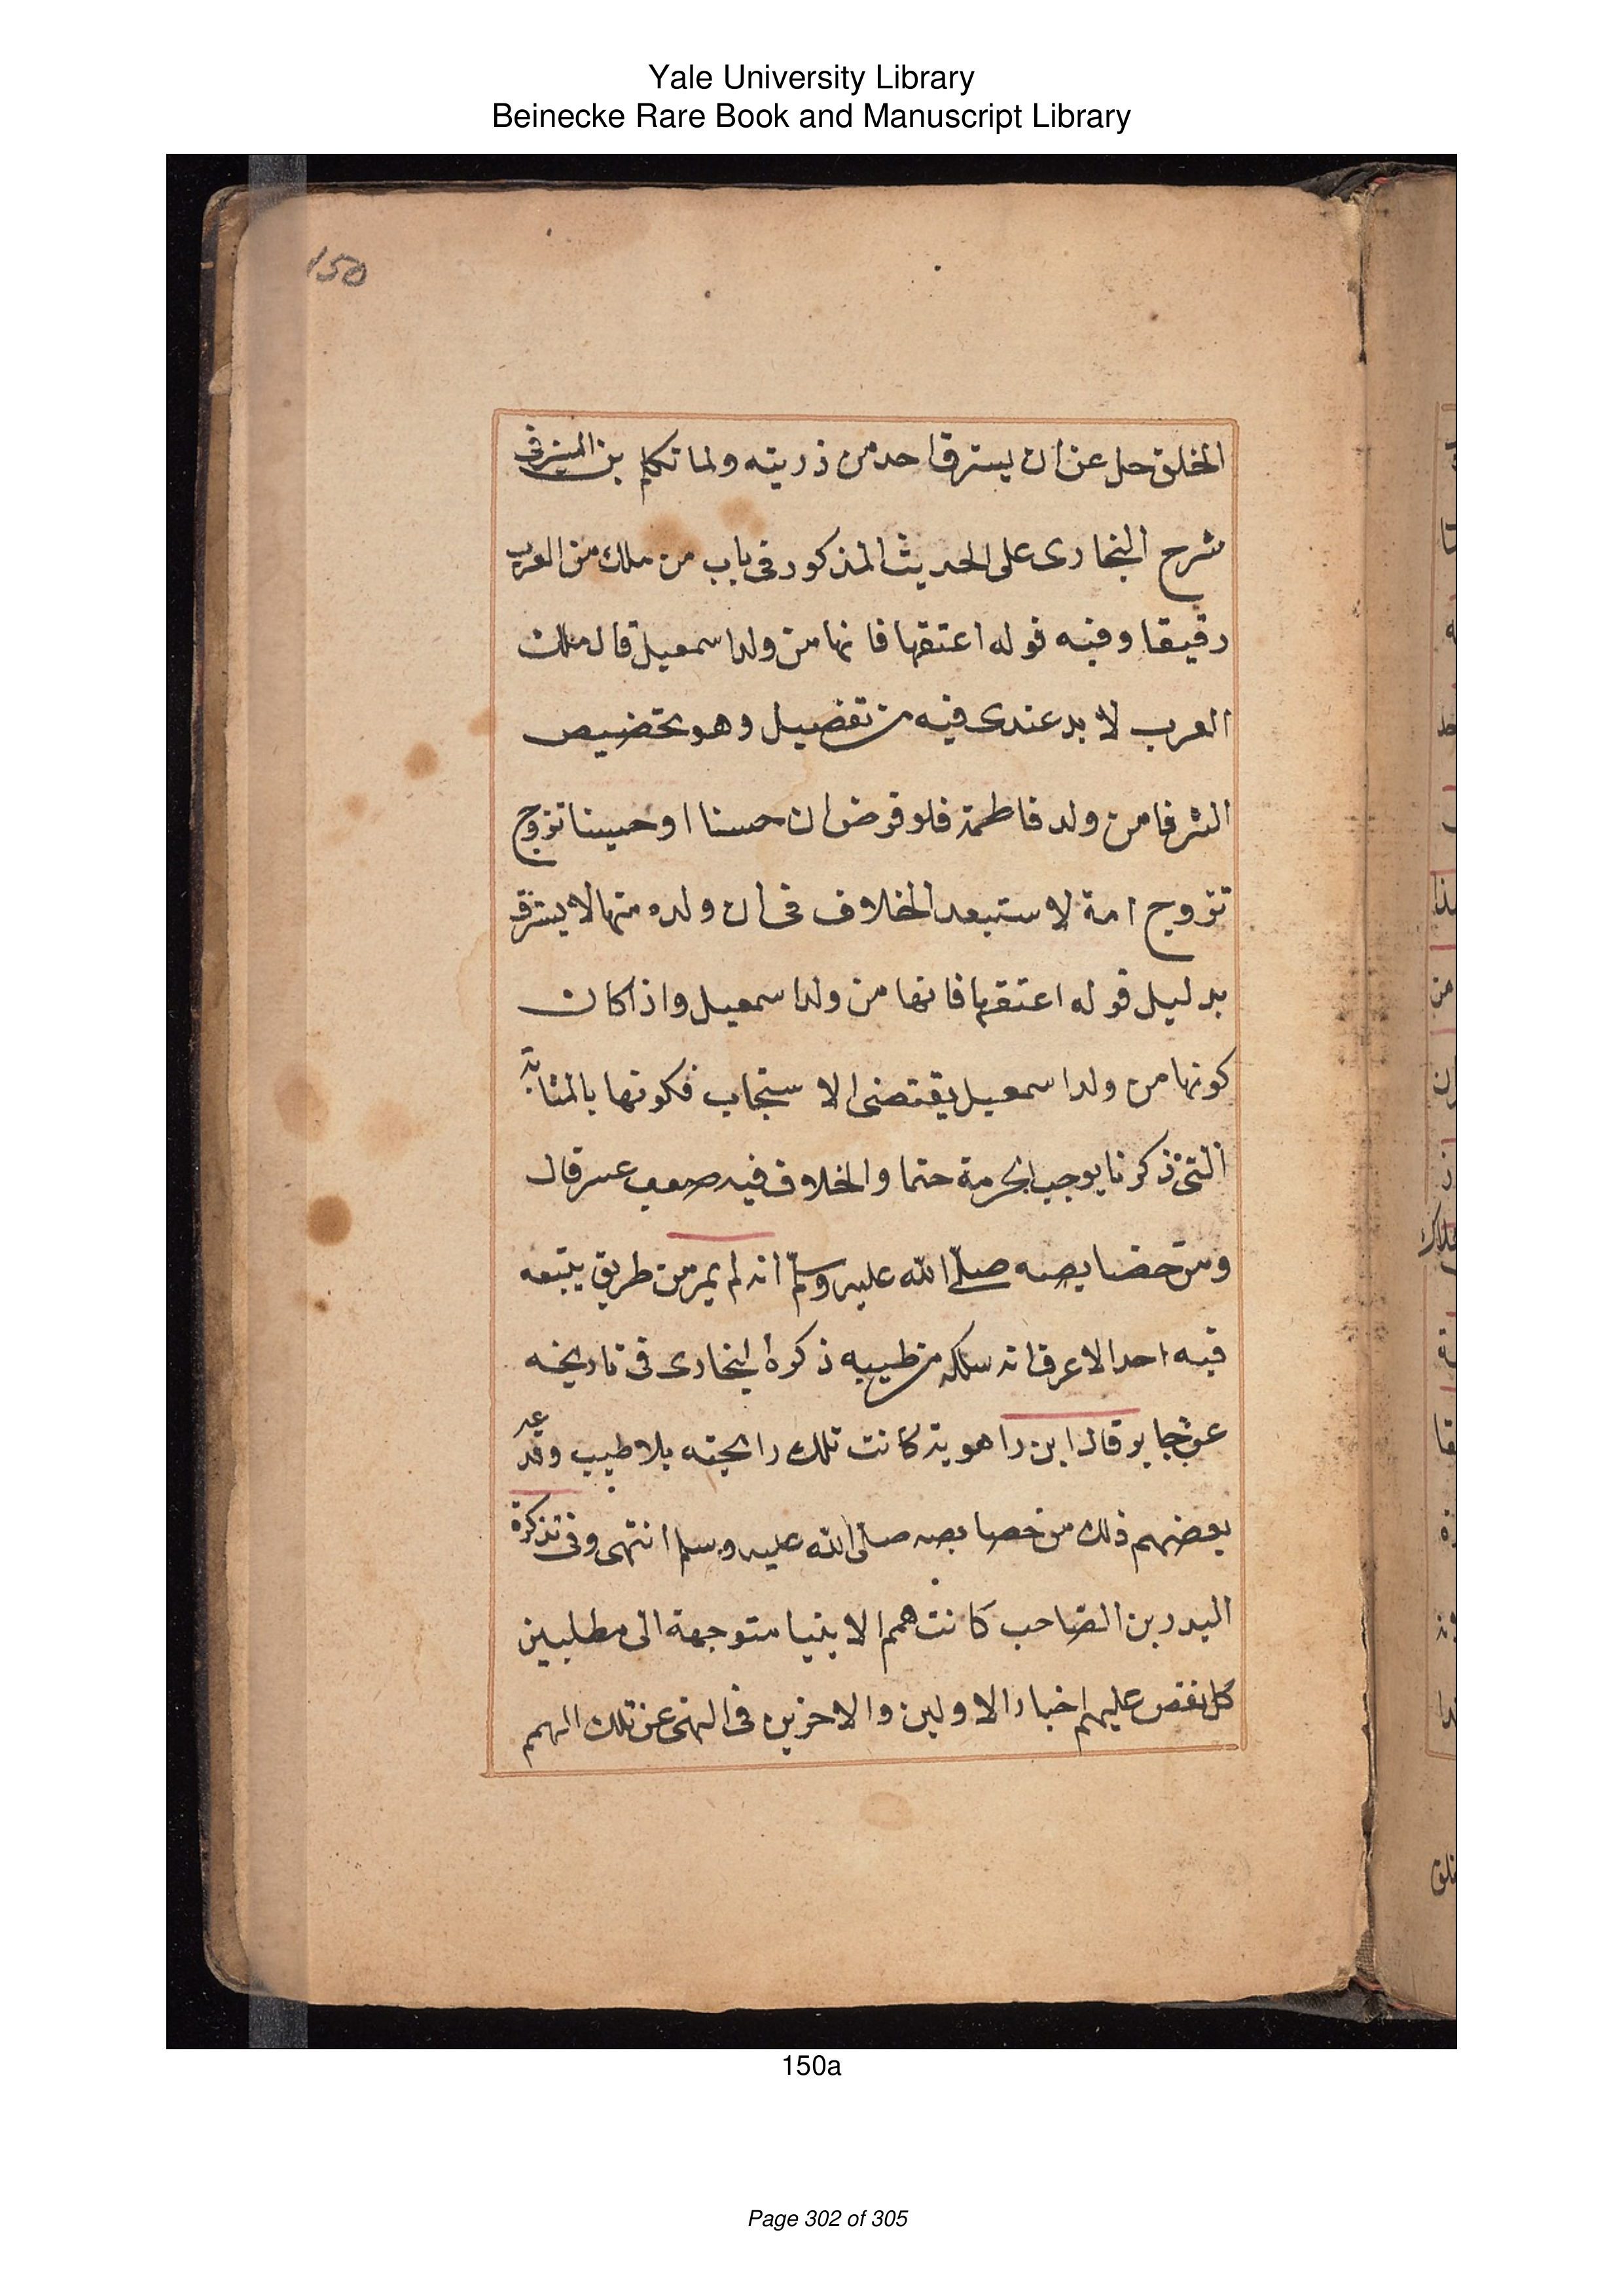 Yale University Library
Beinecke Rare Book and Manuscript Library
150
الخلق حل عن ان يسترق احد من ذريته ولما تكلم بن المنير فى
شرح البخارى على الحديث المذكور فى باب من ملك من العرب
رقيقا وفيه قوله اعتقها فانها من ولد اسمعيل قال ملك
العرب لا بد عندى فيه من تفضيل وهو تخضيص
الشرفا من ولد فاطمة فلو فرض ان حسنا او حسينا تزوج
تزوج امة لاستبعد الخلاف فى ان ولده منها لا يسترق
بدليل قوله اعتقها فانها من ولد اسمعيل واذا كان
كونها من ولد اسمعيل يقتضى الاستجاب فكونها بالمثابة
التى ذكرنا يوجب الحرمة حتما والخلاف فيه صعب عسر قال
ومن خضايصه صلى الله عليه وسلم انه لم يمر من طريق يتبعه
فيه احد الا عرف انه سلكه من طيبه ذكره البخارى فى تاريخه
عن جابر قال ابن راهوية كانت تلك رايحته بلا طيب وقد عد
بعضهم ذلك من خصايصه صلى الله عليه وسلم انتهى وفى تذكرة
البدر بن الصاحب كانت همم الانبيا متوجهة الى مطلبين
كل نقص عليهم اخبار الاولين والاخرين فى النهى عن تلك الهمم
150a
Page 302 of 305